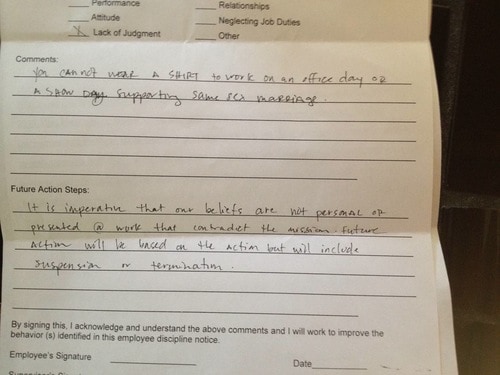 Performance
Relationships
Attitude
Neglecting Job Duties
X Lack of Judgment
Other
Comments:
You cannot wear a shirt to work on an office day or
a show day supporting same sex marriage.
Future Action Steps:
It is imperative that our beliefs are not personal or
presented @ work that contradict the mission. Future
action will be based on the action but will include
suspension or termination.
By signing this, I acknowledge and understand the above comments and I will work to improve the
behavior (s) identified in this employee discipline notice.
Employee's Signature
Date